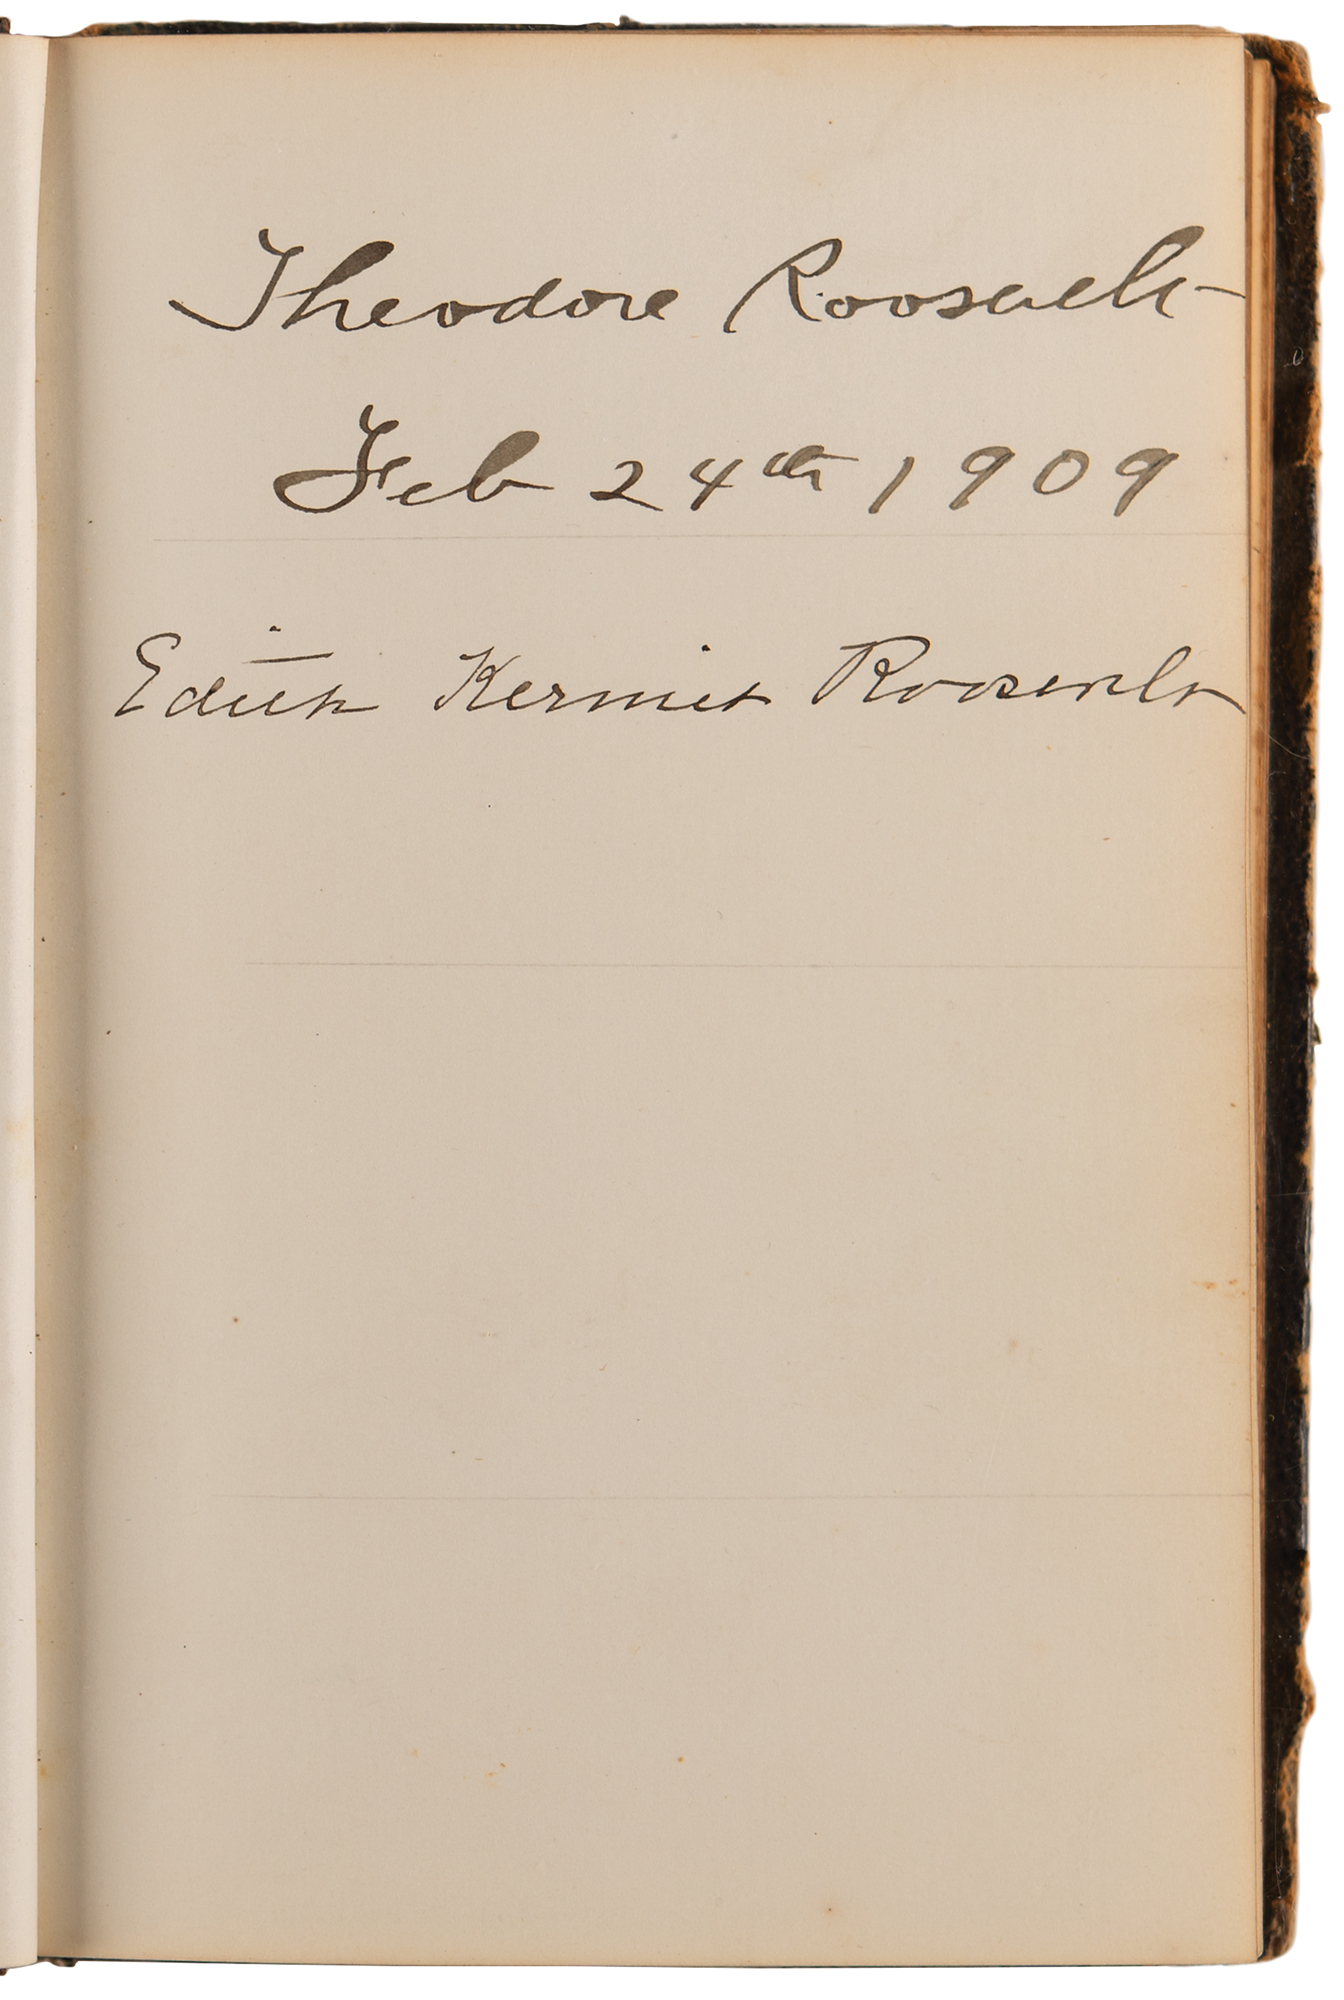 Theodore Roosevelt
Feb 24th 1909
Edith Kermit Roosevelt